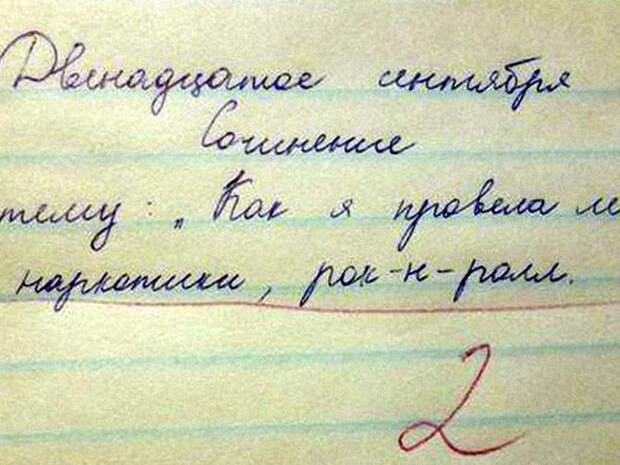 Двенадцатое сентября
Сочинение
тему: „Как я провела ле
наркотики, рок-н-ролл.
2